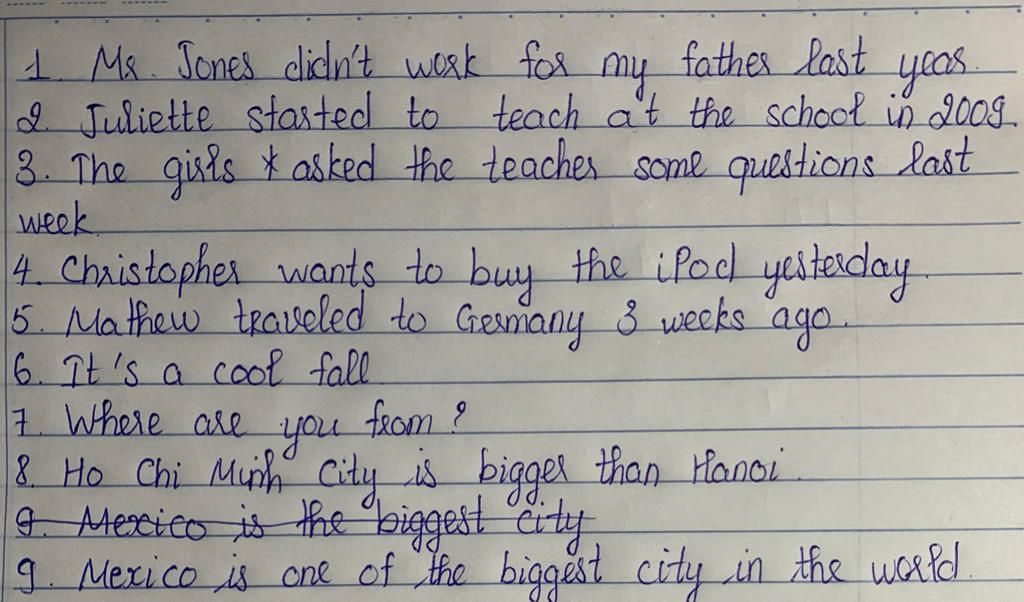 1. Mr. Jones didn't work for my father last year.
2. Juliette started to teach at the school in 2009.
3. The girls * asked the teacher some questions last
week.
4. Christopher wants to buy the iPod yesterday.
5. Mathew traveled to Germany 3 weeks ago.
6. It's a cool fall.
7. Where are you from?
8. Ho Chi Minh City is bigger than Hanoi.
9. Mexico is the biggest city
9. Mexico is one of the biggest city in the world.